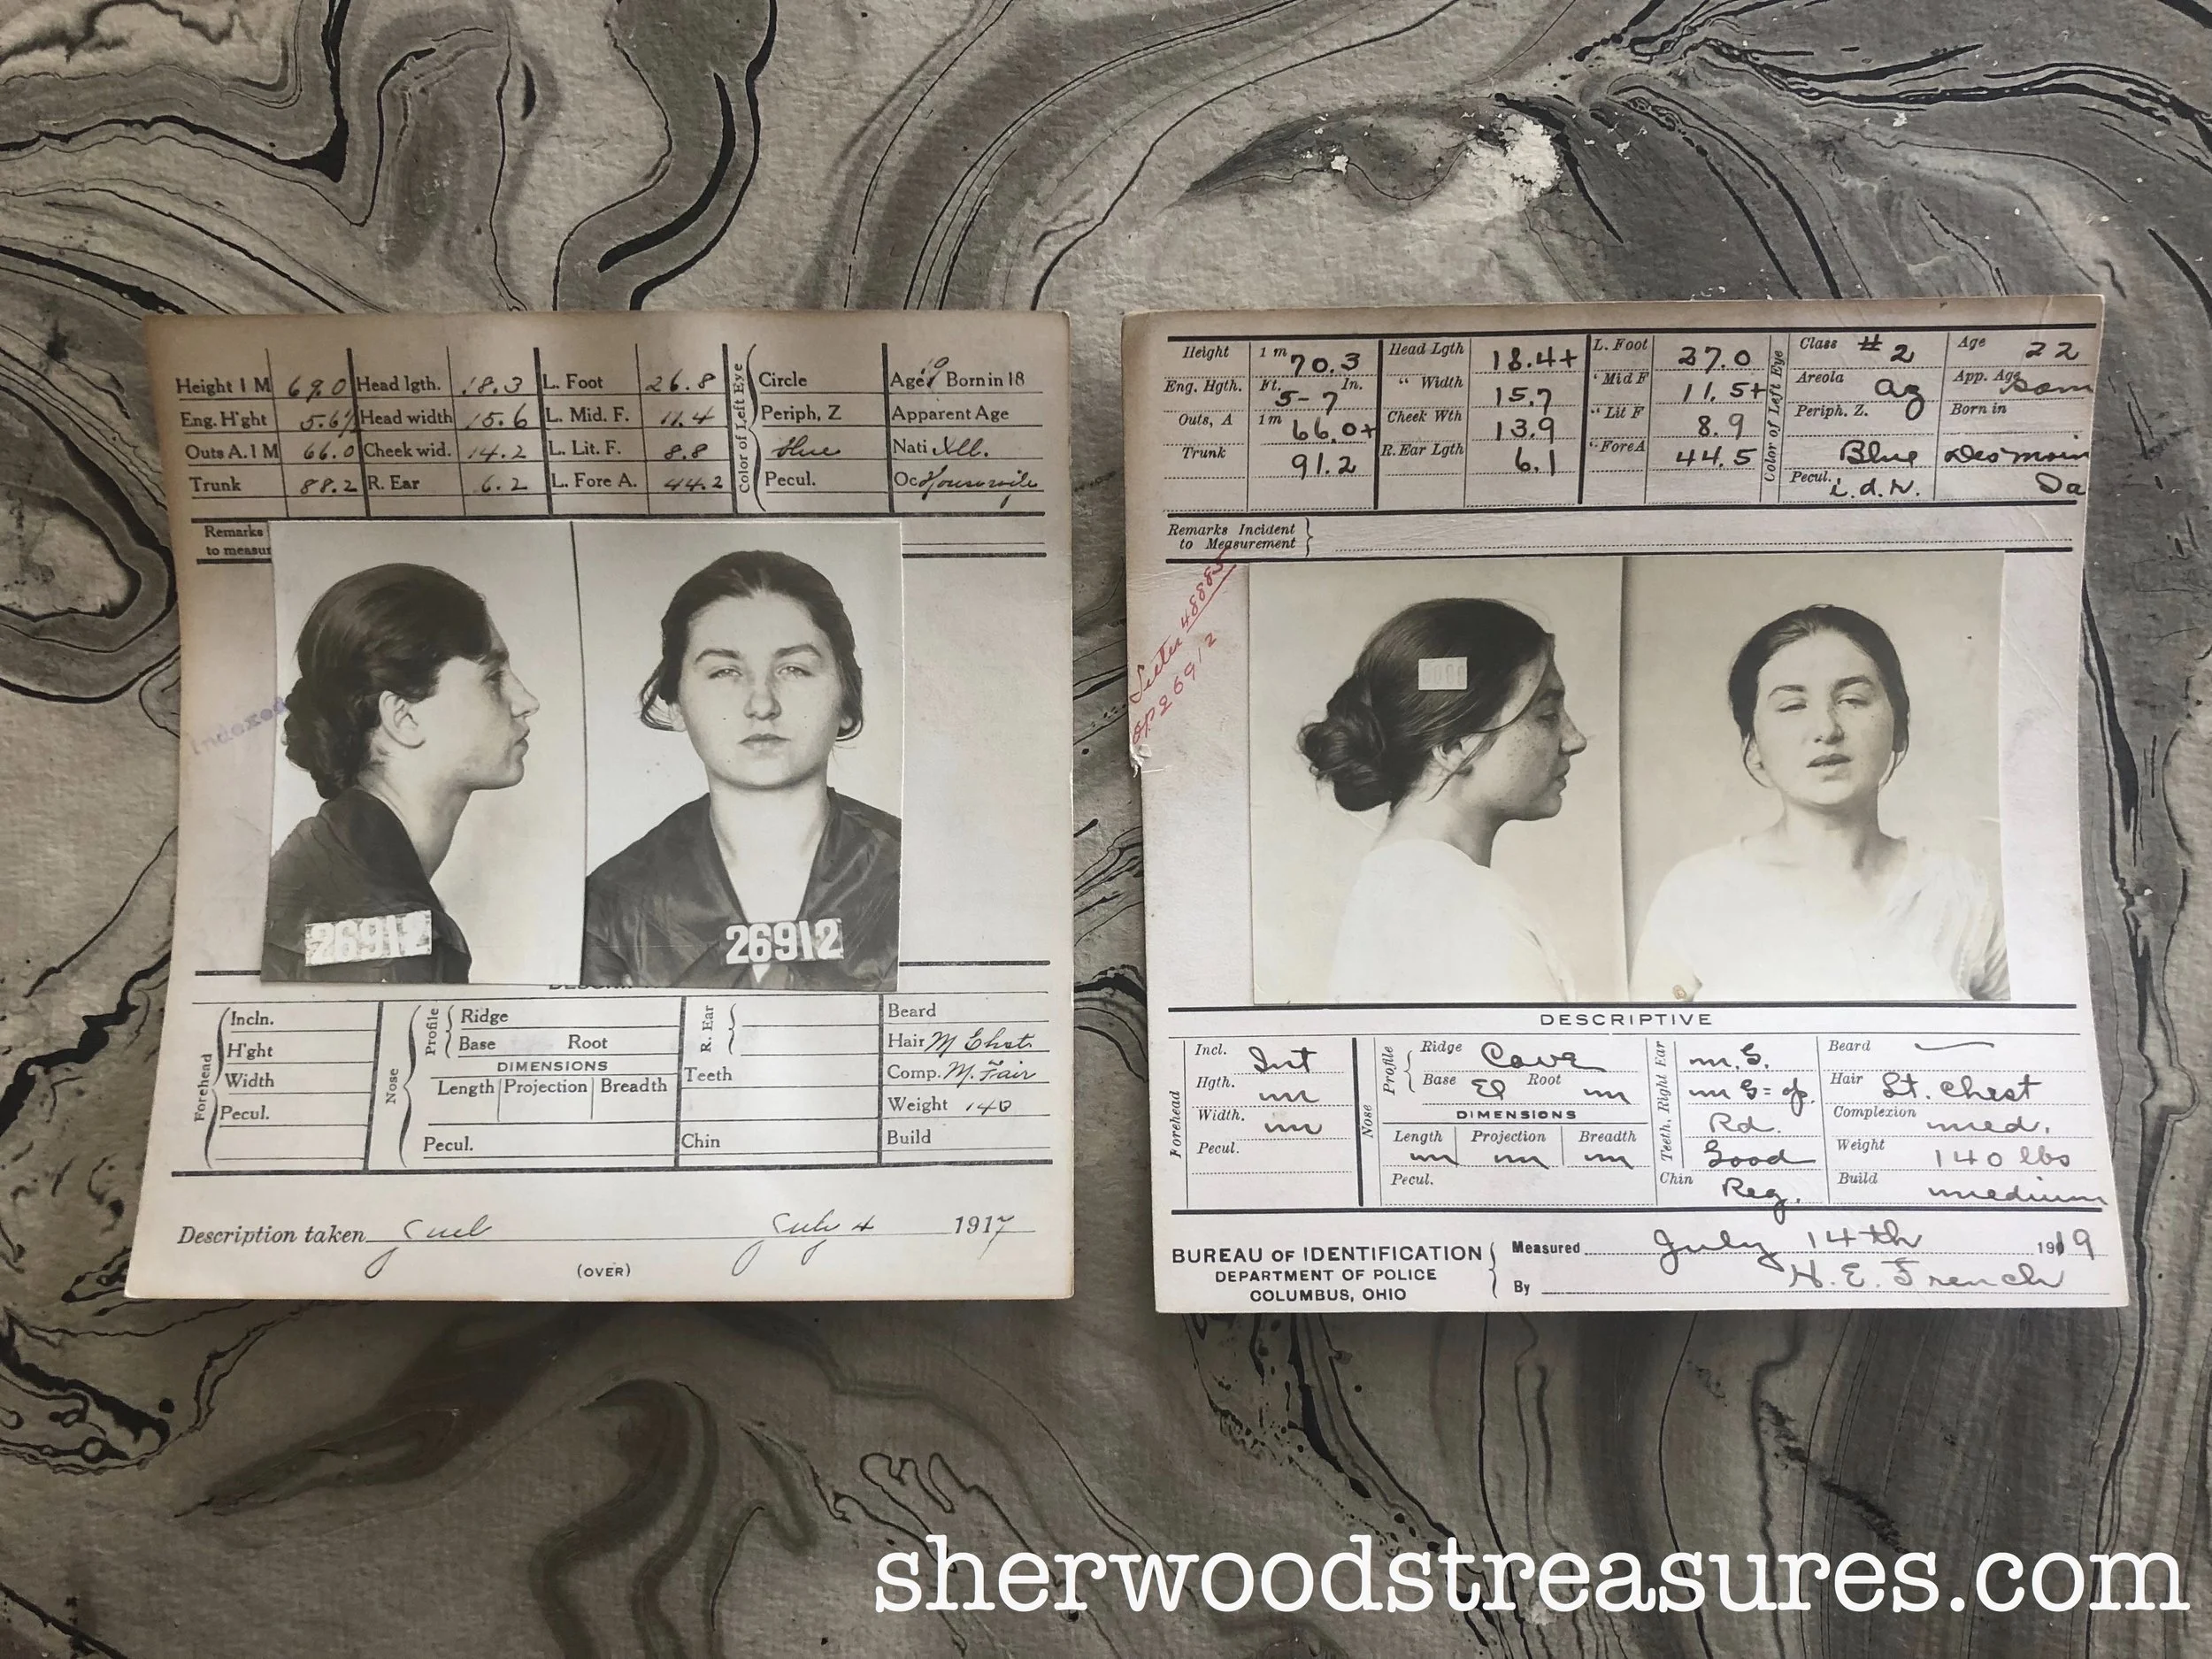 Height 1 M 69.0 Head lgth. 18.3 L. Foot 26.8 Circle Age 19 Born in 18
Eng. H'ght 5.6½ Head width 15.6 L. Mid. F. 11.4 Periph, Z Apparent Age
Outs A. 1 M 66.0 Cheek wid. 14.2 L. Lit. F. 8.8 Blue Nati
Trunk 88.2 R. Ear 6.2 L. Fore A. 44.2 Pecul. Oc Housewife
Color of Left Eye
Remarks
to measur
Indexed
26912
26912
Forehead
Incln.
H'ght
Width
Pecul.
Nose
Profile
Ridge
Base Root
DIMENSIONS
Length Projection Breadth
Pecul.
R. Ear
Teeth
Chin
Beard
Hair M Chst.
Comp. M. Fair
Weight 140
Build
Description taken July 4 1917
(OVER)
Height 1 m 70.3 Head Lgth 18.4+ L. Foot 27.0 Class #2 Age 22
Eng. Hgth. Ft. 5-7 In. " Width 15.7 " Mid F 11.5+ Areola az App. Age
Outs, A 1 m 66.0+ Cheek Wth 13.9 " Lit F 8.9 Periph. Z. Born in
Trunk 91.2 R. Ear Lgth 6.1 " Fore A 44.5 Blue Des Moin
Pecul. i.d.n. Ia
Color of Left Eye
Remarks Incident
to Measurement
48885
26912
DESCRIPTIVE
Forehead
Incl. Int
Hgth. m
Width. m
Pecul.
Nose
Profile
Ridge Cave
Base El Root m
DIMENSIONS
Length Projection Breadth
m m m
Pecul.
Teeth, Right Ear
m S.
Rd.
Good
Chin Reg.
Beard
Hair Lt. Chest
Complexion med.
Weight 140 lbs
Build medium
BUREAU OF IDENTIFICATION
DEPARTMENT OF POLICE
COLUMBUS, OHIO
Measured July 14th 1919
By H. E. French
sherwoodstreasures.com